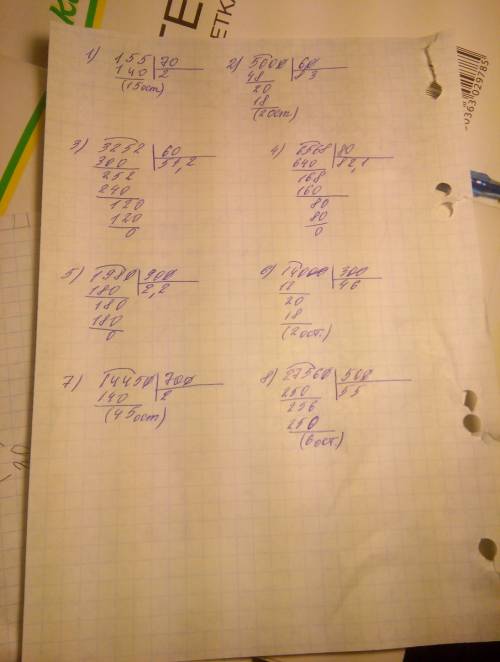 1) 155 70
140 2
(15ост)
2) 5000 60
48 83
20
18
(2ост.)
3) 3252 60
300 54,2
252
240
120
120
0
4) 6568 80
640 82,1
168
160
80
80
0
5) 1980 900
180 2,2
180
180
0
6) 14000 300
12 46
20
18
(2ост.)
7) 14450 700
140 2
(45ост)
8) 27560 500
250 55
256
250
(6ост.)
ЕТКА